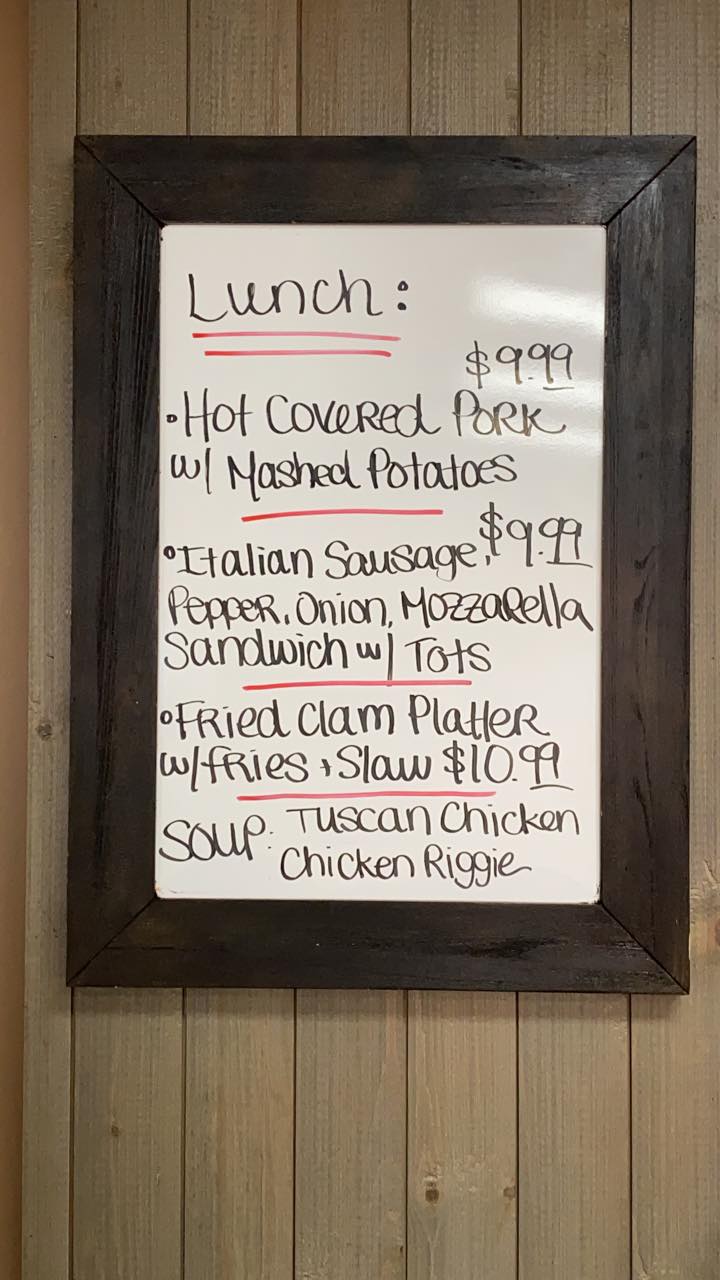 Lunch:
$9.99
•Hot Covered Pork
w/ Mashed Potatoes
$9.99
•Italian Sausage,
Pepper, Onion, Mozzarella
Sandwich w/ Tots
•Fried Clam Platter
w/fries + Slaw $10.99
Soup: Tuscan Chicken
Chicken Riggie